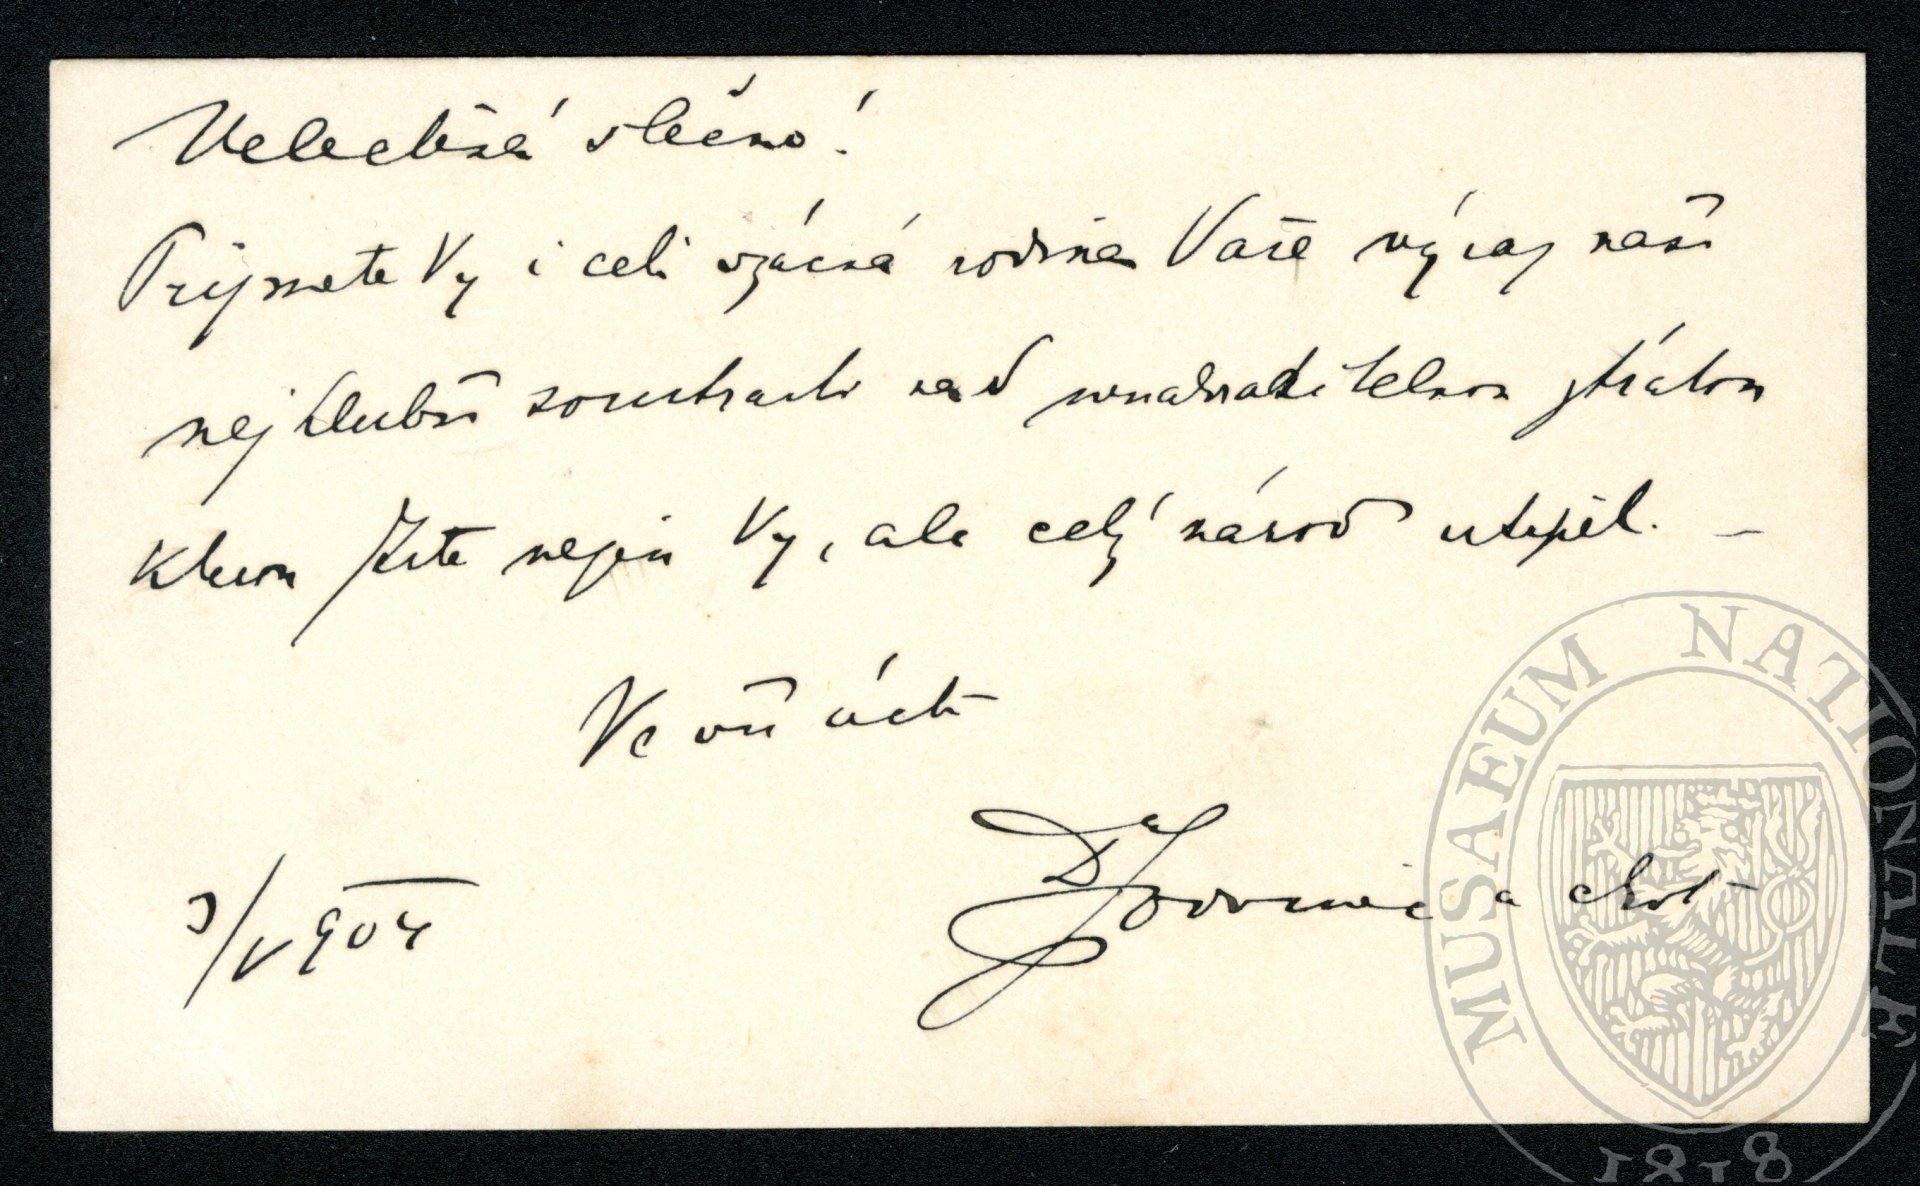 Velectěná slečno!
Přijmete Vy i celá vzácná rodina Vaše výraz naší
nejhlubší soustrasti nad nenahraditelnou ztrátou
kterou Jste nejen Vy, ale celý národ utrpěl. –
Ve vší úctě
3/V 904
a choť
MUSAEUM NATIONALE
1818